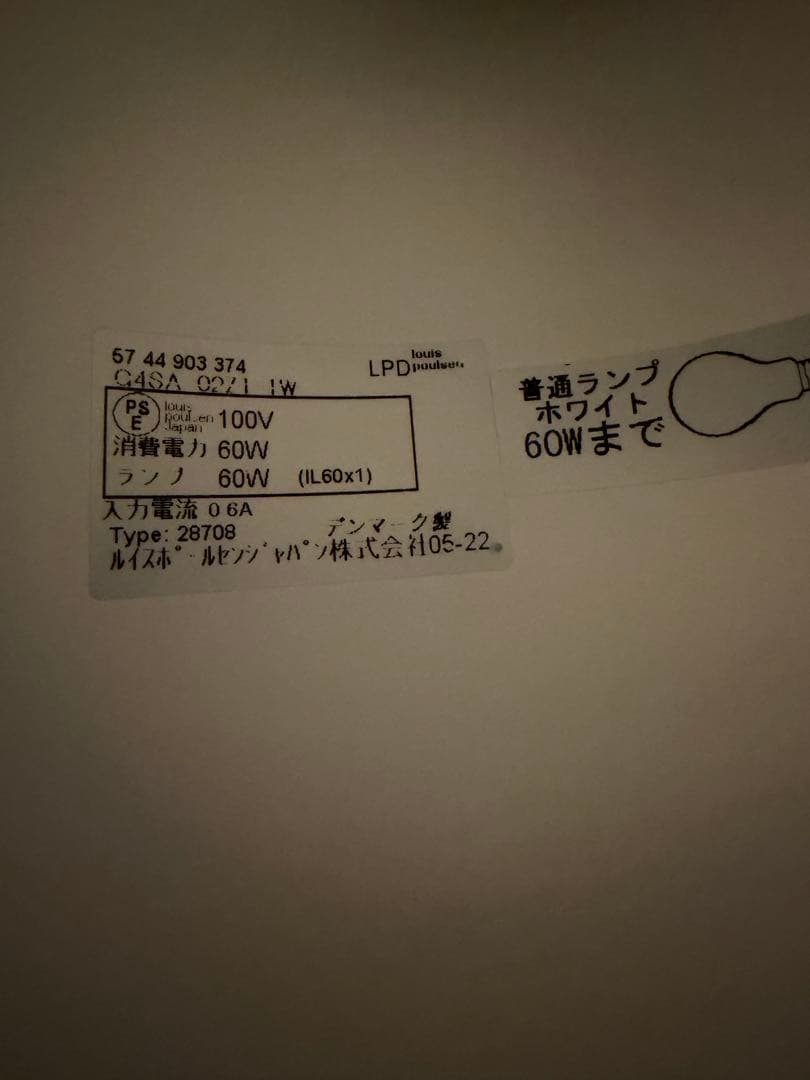 57 44 903 374
LPD louis poulsen
PSE louis poulsen Japan 100V
消費電力 60W
ランプ 60W (IL60x1)
入力電流 0 6A
デンマーク製
Type: 28708
ルイスポールセンジャパン株式会社05-22
普通ランプ
ホワイト
60Wまで